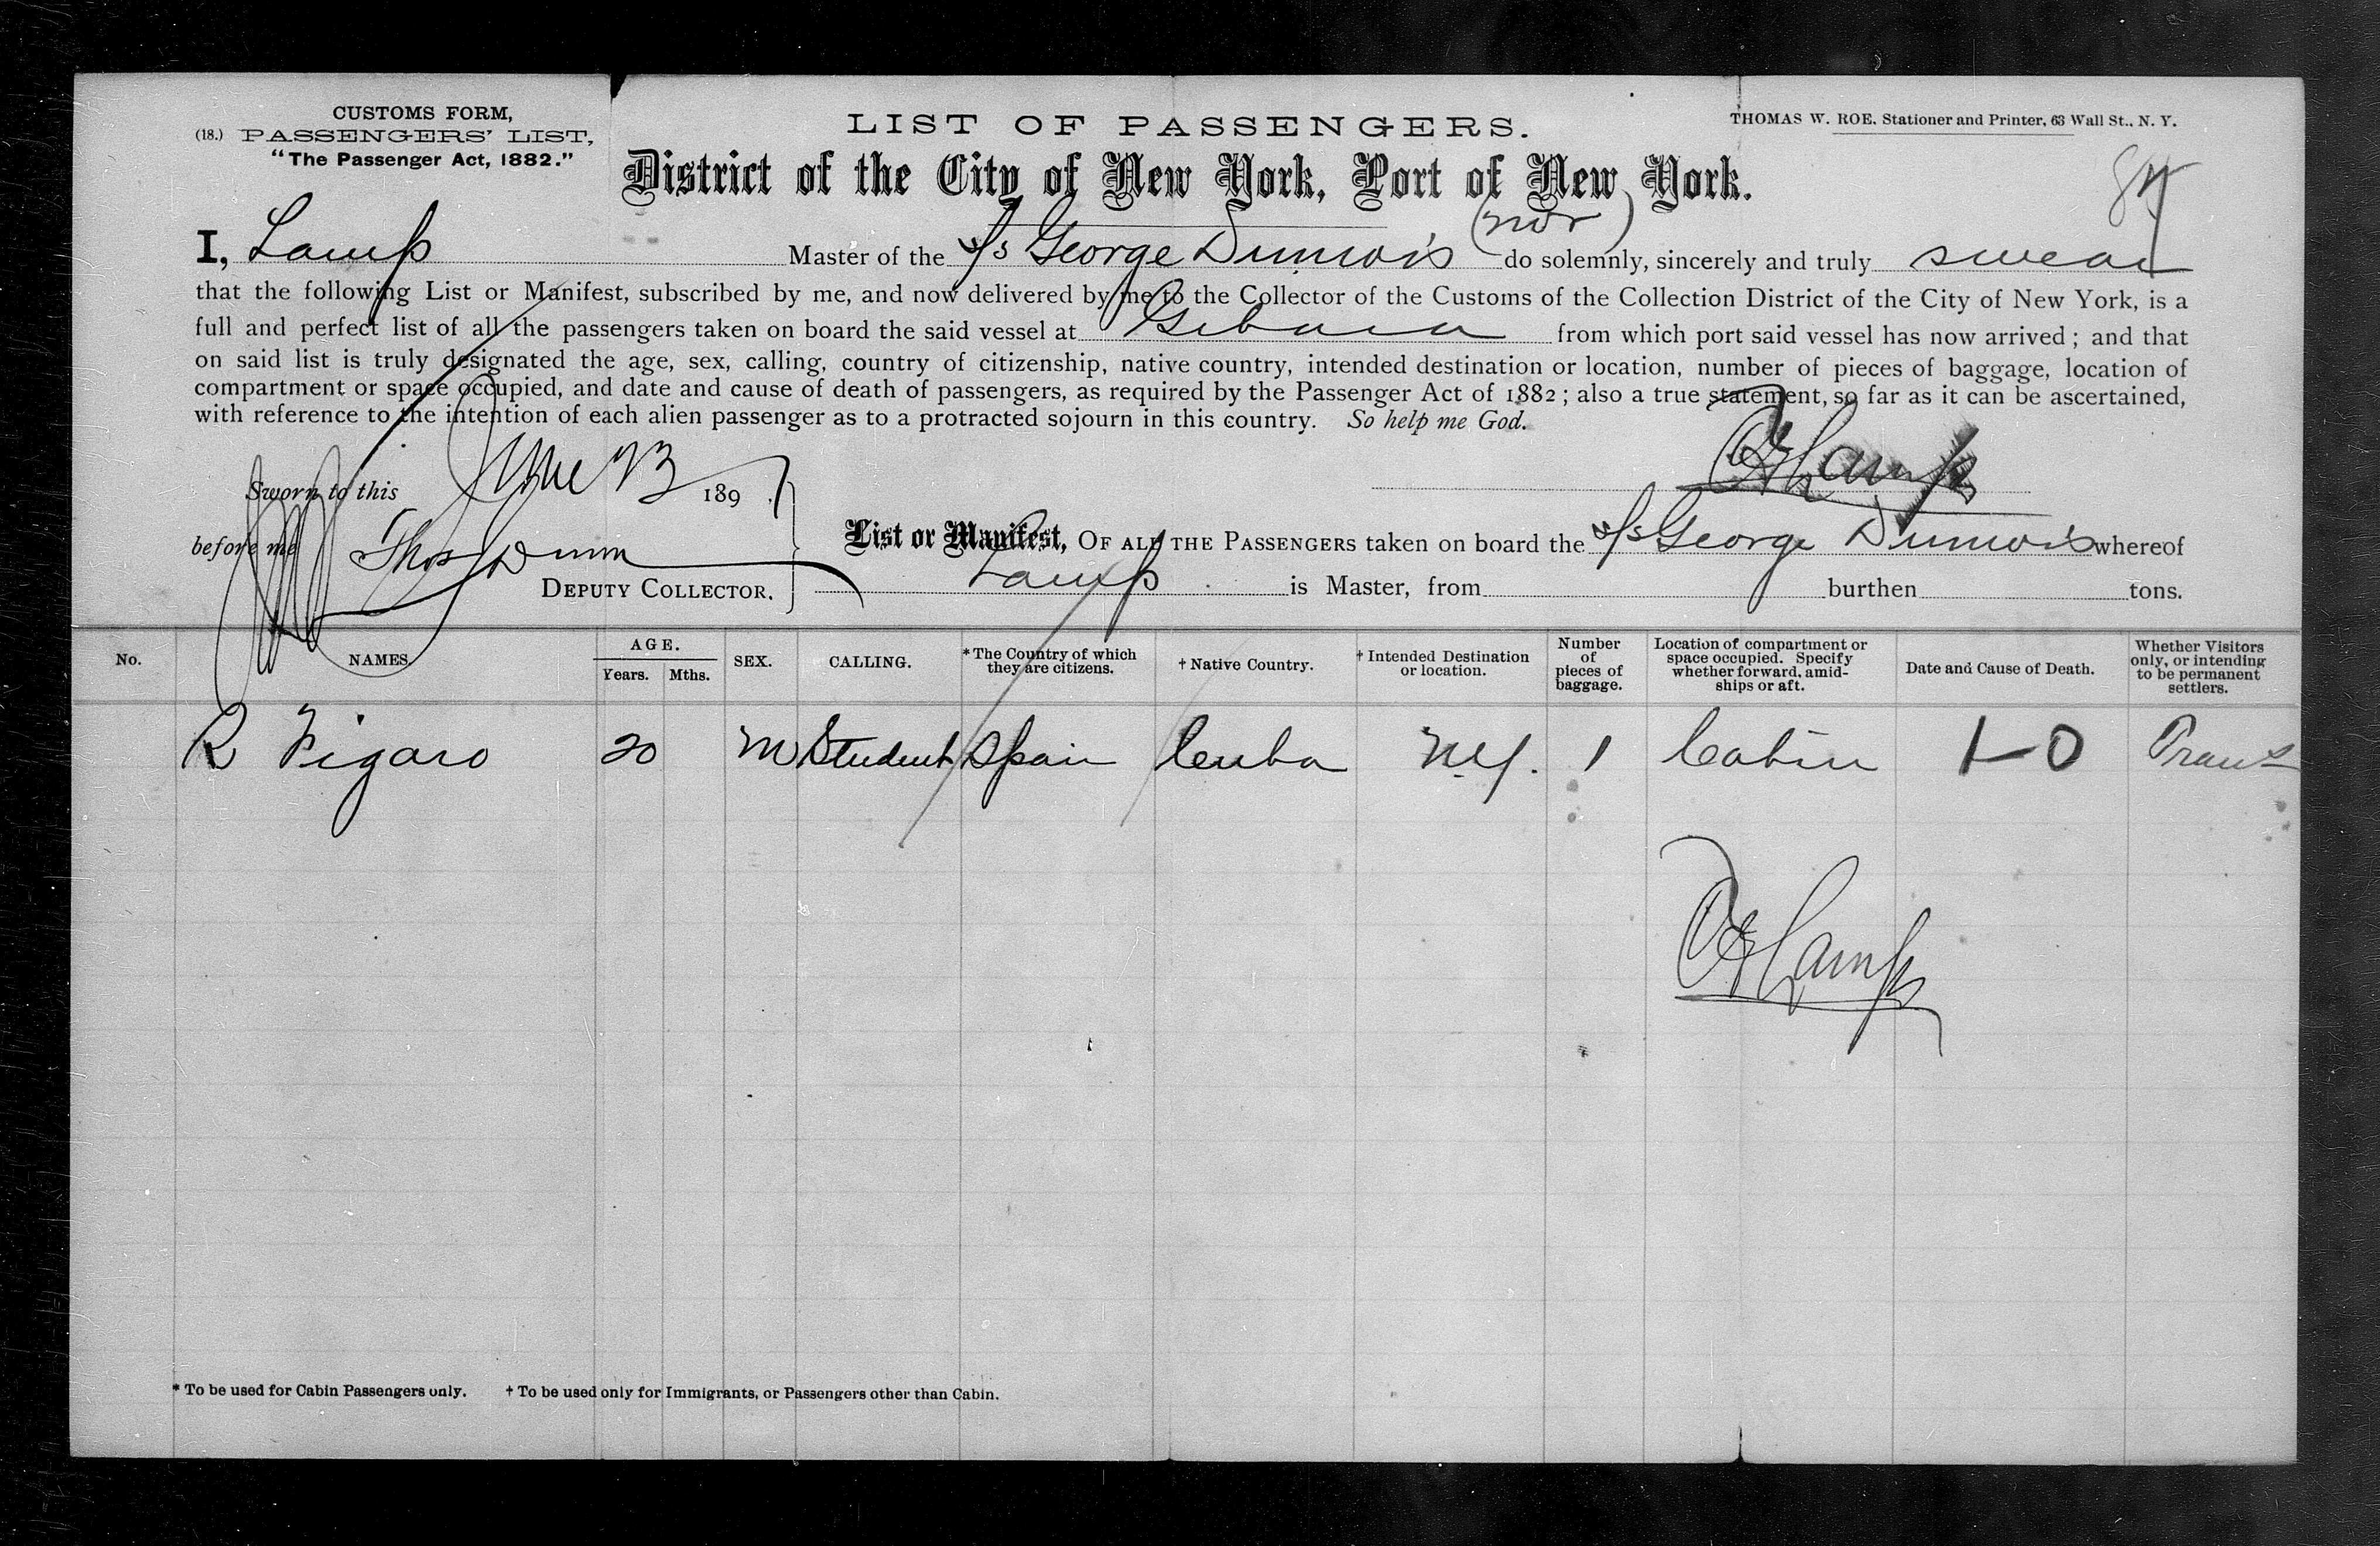 CUSTOMS FORM,
(18.) PASSENGERS' LIST,
"The Passenger Act, 1882."
LIST OF PASSENGERS.
THOMAS W. ROE. Stationer and Printer, 63 Wall St., N. Y.
District of the City of New York, Port of New York.
I, Lamp Master of the s/s George Dumois (Nor) do solemnly, sincerely and truly swear
that the following List or Manifest, subscribed by me, and now delivered by me to the Collector of the Customs of the Collection District of the City of New York, is a
full and perfect list of all the passengers taken on board the said vessel at Gibara from which port said vessel has now arrived; and that
on said list is truly designated the age, sex, calling, country of citizenship, native country, intended destination or location, number of pieces of baggage, location of
compartment or space occupied, and date and cause of death of passengers, as required by the Passenger Act of 1882; also a true statement, so far as it can be ascertained,
with reference to the intention of each alien passenger as to a protracted sojourn in this country. So help me God.
Sworn to this June 189
before me Thos Dunn
DEPUTY COLLECTOR.
Lamp
List or Manifest, OF ALL THE PASSENGERS taken on board the s/s George Dumois whereof
Lamp is Master, from burthen tons.
No. NAMES. AGE. Years. Mths. SEX. CALLING. * The Country of which they are citizens. † Native Country. † Intended Destination or location. Number of pieces of baggage. Location of compartment or space occupied. Specify whether forward, amid-ships or aft. Date and Cause of Death. Whether Visitors only, or intending to be permanent settlers.
R Figaro 20 M Student Spain Cuba N.Y. 1 Cabin 1-0 Trans
Lamp
* To be used for Cabin Passengers only. † To be used only for Immigrants, or Passengers other than Cabin.